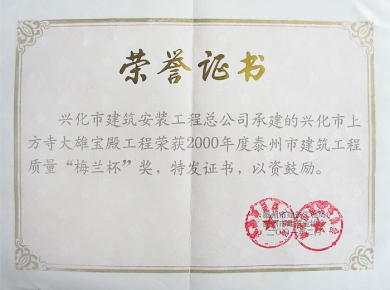 荣誉证书
兴化市建筑安装工程总公司承建的兴化市上
方寺大雄宝殿工程荣获2000年度泰州市建筑工程
质量“梅兰杯”奖，特发证书，以资鼓励。